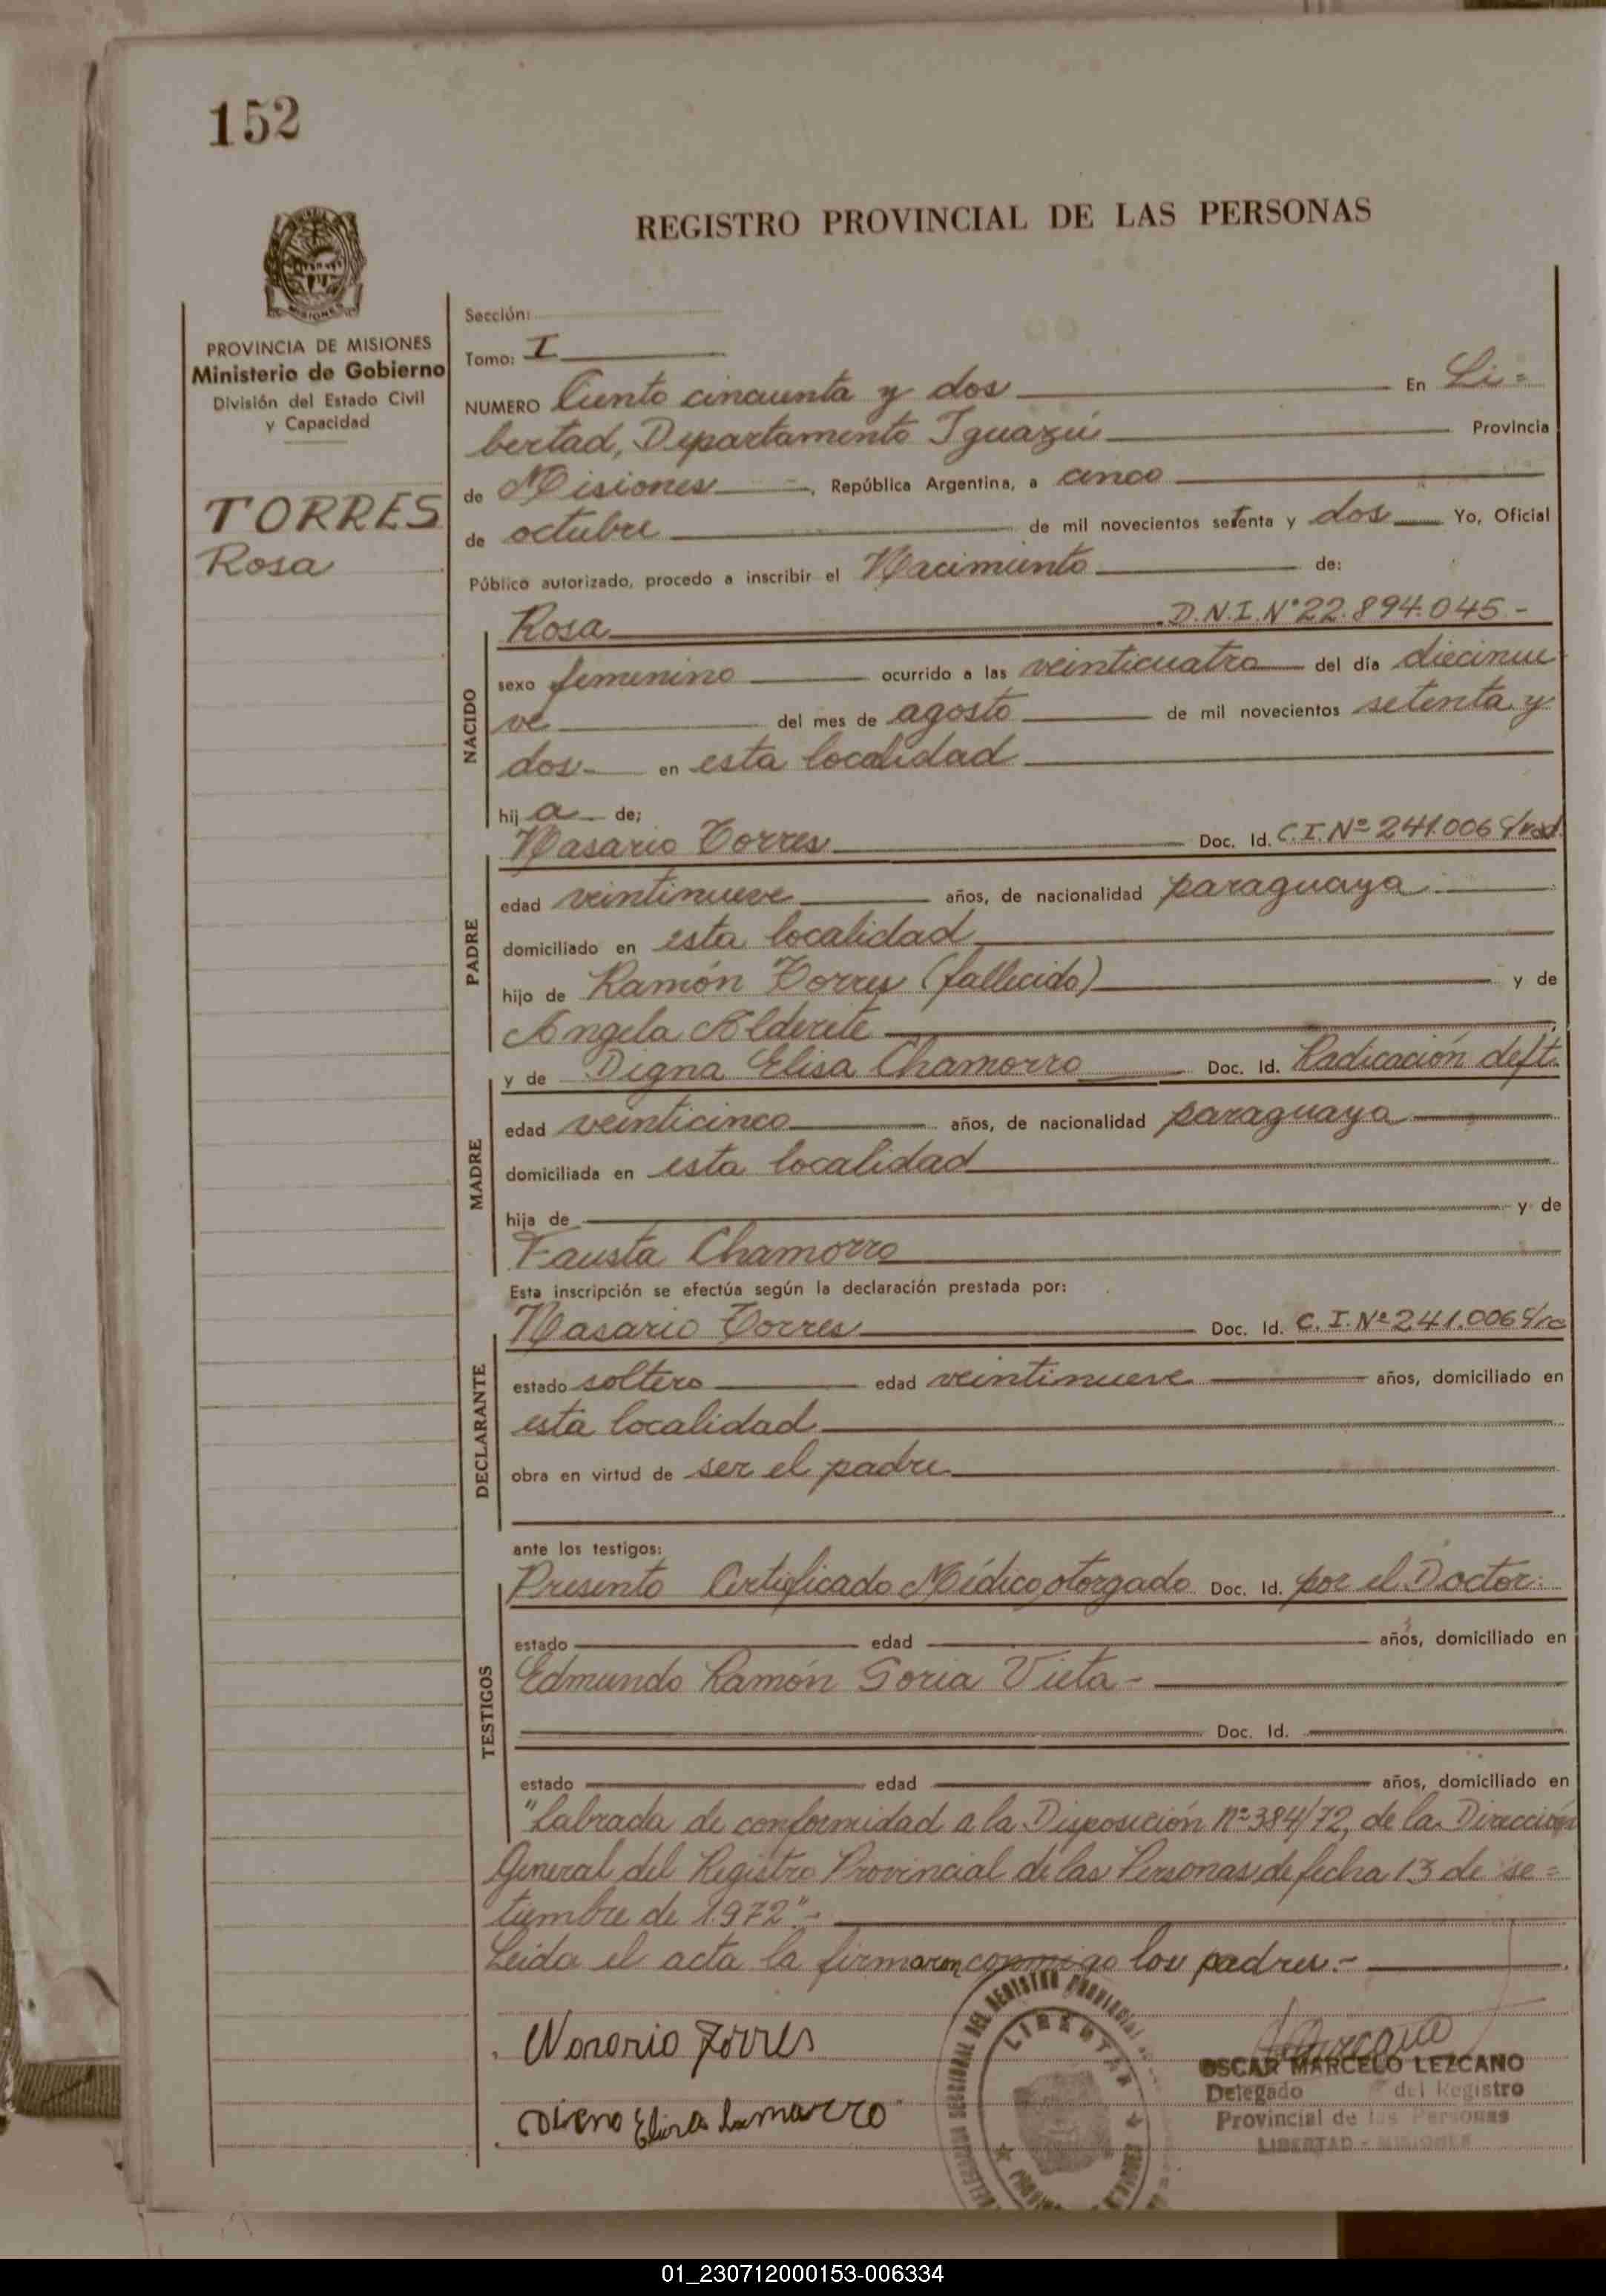 152
REGISTRO PROVINCIAL DE LAS PERSONAS
MISIONES
PROVINCIA DE MISIONES
Ministerio de Gobierno
División del Estado Civil
y Capacidad
TORRES
Rosa
Sección:
Tomo: I
NUMERO Ciento cincuenta y dos En Li=
bertad, Departamento Iguazú Provincia
de Misiones, República Argentina, a cinco
de octubre de mil novecientos setenta y dos Yo, Oficial
Público autorizado, procedo a inscribir el Nacimiento de:
Rosa D.N.I. N° 22.894.045.-
NACIDO
sexo femenino ocurrido a las veinticuatro del día diecinue
ve del mes de agosto de mil novecientos setenta y
dos- en esta localidad
hij a de;
PADRE
Nasario Torres Doc. Id. C.I. Nº 241.006
edad veintinueve años, de nacionalidad paraguaya
domiciliado en esta localidad
hijo de Ramón Torres (fallecido) y de
Angela Alderete
MADRE
y de Digna Elisa Chamorro Doc. Id. Radicación deft.
edad veinticinco años, de nacionalidad paraguaya
domiciliada en esta localidad
hija de y de
Fausta Chamorro
Esta inscripción se efectúa según la declaración prestada por:
DECLARANTE
Nasario Torres Doc. Id. C. I. Nº 241.006
estado soltero edad veintinueve años, domiciliado en
esta localidad
obra en virtud de ser el padre
ante los testigos:
TESTIGOS
Presento Certificado Médico otorgado Doc. Id. por el Doctor:
estado edad años, domiciliado en
Edmundo Ramón Soria Vieta-
Doc. Id.
estado edad años, domiciliado en
"Labrada de conformidad a la Disposición nº 384/72, de la Dirección
General del Registro Provincial de las Personas de fecha 13 de se=
tiembre de 1.972".-
Leida el acta la firmaron conmigo los padres.-
Nonorio Torres
Elisa
LIBERTAD
OSCAR MARCELO LEZCANO
Delegado del Registro
Provincial de las Personas
LIBERTAD - MISIONES
01_230712000153-006334